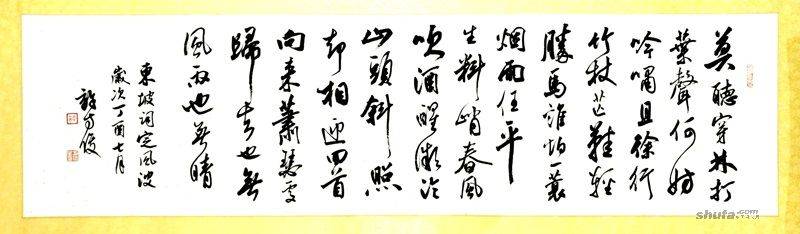 莫聽穿林打
葉聲何妨
吟嘯且徐行
竹杖芒鞋輕
勝馬誰怕一蓑
烟雨任平
生料峭春風
吹酒醒微冷
山頭斜照
却相迎回首
向來蕭瑟處
歸去也無
風雨也無晴
東坡詞定風波
歲次丁酉七月
shufa.com